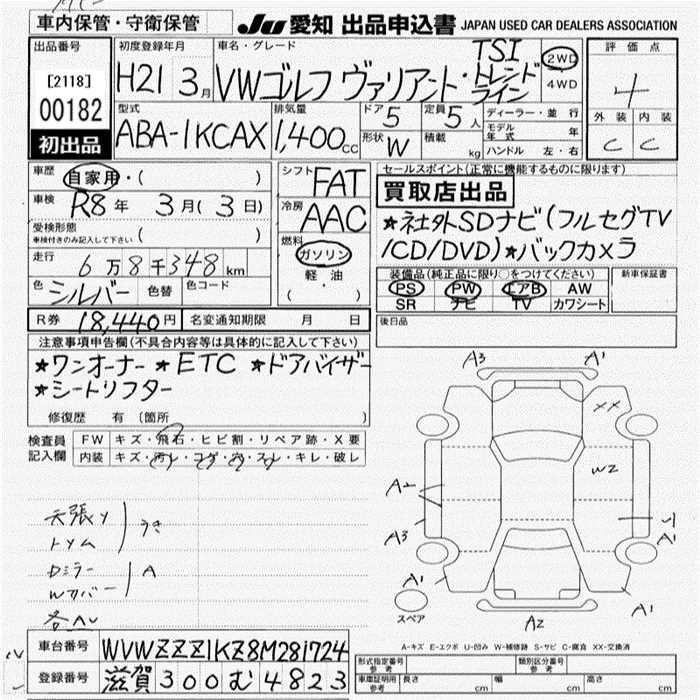 車内保管・守衛保管
JU 愛知 出品申込書 JAPAN USED CAR DEALERS ASSOCIATION
出品番号
[2118]
00182
初出品
初度登録年月
H21 3月
車名・グレード
VWゴルフ ヴァリアント・TSI トレンドライン
2WD
4WD
評価点
4
外装 内装
C C
型式
ABA-1KCAX
排気量
1,400cc
ドア 5
定員 5人
形状 W
積載 kg
ディーラー・並行
モデル年式 年
ハンドル 左・右
車歴 自家用・( )
車検 R8年 3月(3日)
受検形態
車検付きのみ記入して下さい ( )
走行 6万8千348km
色 シルバー 色替 色コード
シフト FAT
冷房 AAC
燃料 ガソリン
軽油
( ・ )
R券 18,440円 名変通知期限 月 日
セールスポイント(正常に機能するものに限ります)
買取店出品
★社外SDナビ(フルセグTV
/CD/DVD)★バックカメラ
装備品(純正品に限り○をつけてください)
PS PW エアB AW
SR ナビ TV カワシート
新車保証書
後日品
注意事項申告欄(不具合内容等は具体的に記入して下さい)
★ワンオーナー ★ETC ★ドアバイザー
★シートリフター
修復歴 有 〔箇所 〕
検査員記入欄
FW キズ・飛石・ヒビ割・リペア跡・X要
内装 キズ・汚レ・コゲ・穴・スレ・キレ・破レ
天張り
トリム
うき
Dミラー
Wカバー
A
A3 A1
XX
W2
A2
A3
A1
A1
A1
A2
スペア
A-キズ E-エクボ U-凹み W-補修跡 S-サビ C-腐食 XX-交換済
車台番号 WVWZZZ1KZ8M281724
登録番号 滋賀 300 む 4823
形式指定番号 参考
類別区分番号 参考
車庫証明用 参考 長さ cm 幅 cm 高さ cm